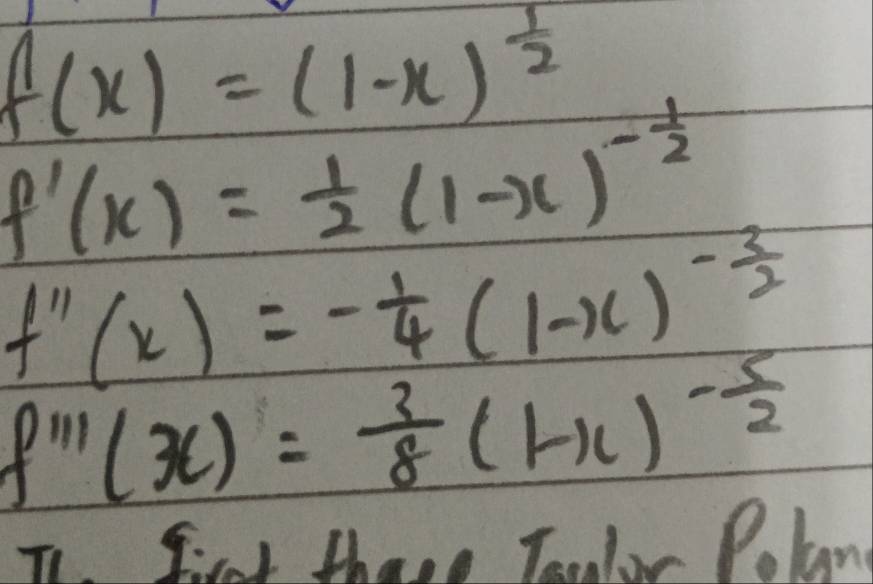 f(x) = (1-x)^{\frac{1}{2}}
f'(x) = \frac{1}{2} (1-x)^{-\frac{1}{2}}
f''(x) = -\frac{1}{4} (1-x)^{-\frac{3}{2}}
f'''(x) = \frac{3}{8} (1-x)^{-\frac{5}{2}}
first three Taylor